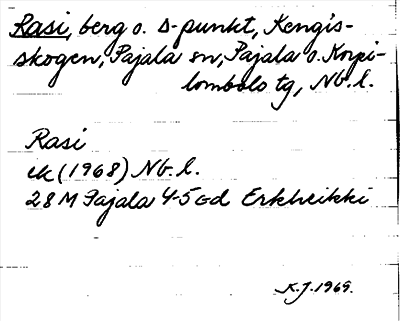 Rasi, berg o. s-punkt, Kengis-
skogen, Pajala sn, Pajala o. Korpi-
lombolo tg, Nb. l.
Rasi
ek (1968) Nb. l.
28 M Pajala 4-5 cd Erkheikki
K.J. 1969.